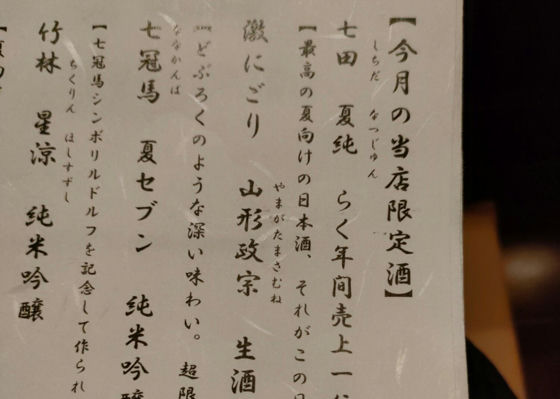 【今月の当店限定酒】
しちだ なつじゅん
七田 夏純 らく年間売上一
【最高の夏向けの日本酒、それがこの
やまがたまさむね
激にごり 山形政宗 生酒
【どぶろくのような深い味わい。超限
ななかんば
七冠馬 夏セブン 純米吟醸
【七冠馬シンボリルドルフを記念して作られ
ちくりん ほしすずし
竹林 星涼 純米吟醸